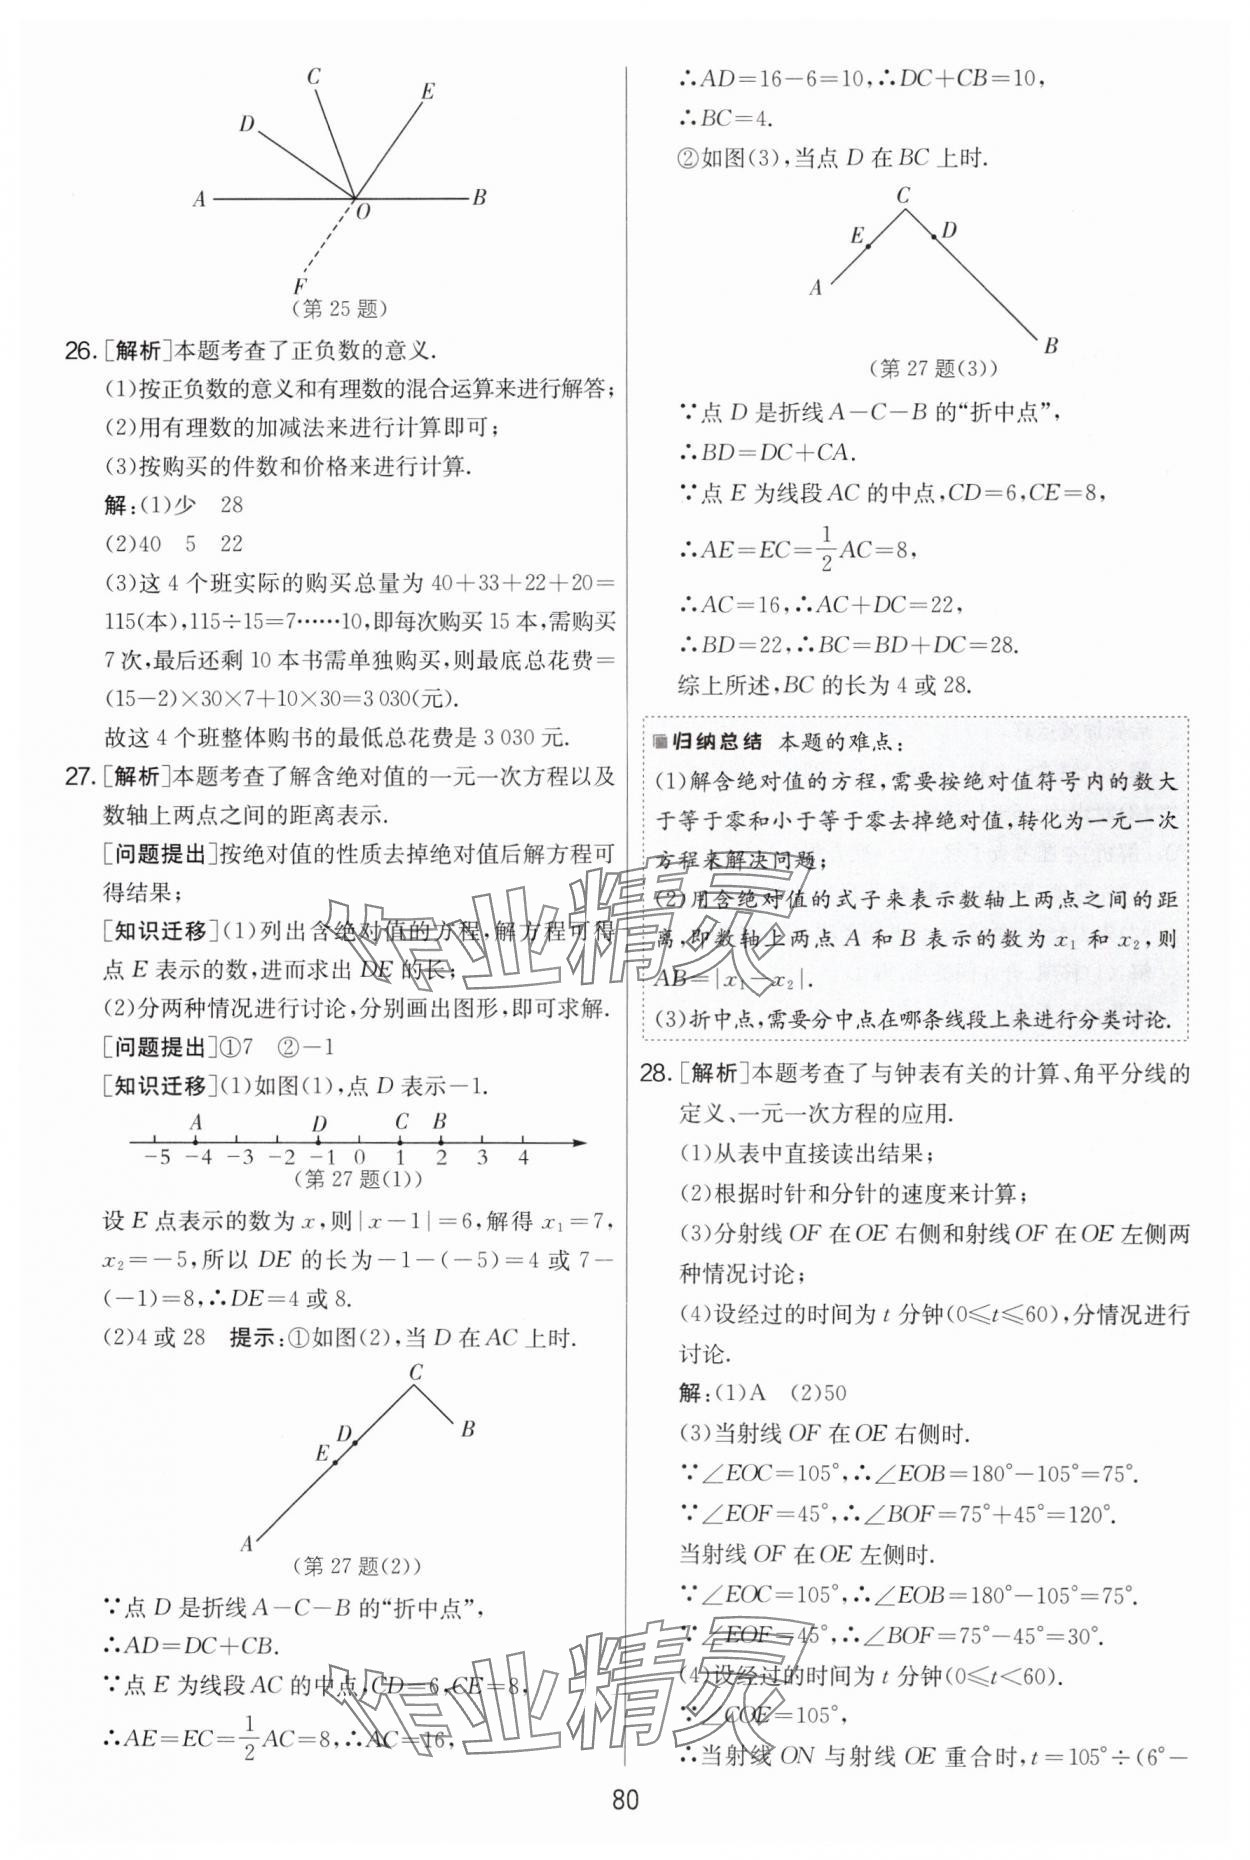 C
E
D
A
O
B
F
(第 25 题)
26. [解析]本题考查了正负数的意义.
(1)按正负数的意义和有理数的混合运算来进行解答;
(2)用有理数的加减法来进行计算即可;
(3)按购买的件数和价格来进行计算.
解:(1)少 28
(2)40 5 22
(3)这 4 个班实际的购买总量为 40+33+22+20=
115(本),115÷15=7……10,即每次购买 15 本,需购买
7 次,最后还剩 10 本书需单独购买,则最底总花费=
(15-2)×30×7+10×30=3 030(元).
故这 4 个班整体购书的最低总花费是 3 030 元.
27. [解析]本题考查了解含绝对值的一元一次方程以及
数轴上两点之间的距离表示.
[问题提出]按绝对值的性质去掉绝对值后解方程可
得结果;
[知识迁移](1)列出含绝对值的方程,解方程可得
点 E 表示的数,进而求出 DE 的长;
(2)分两种情况进行讨论,分别画出图形,即可求解.
[问题提出]①7 ②-1
[知识迁移](1)如图(1),点 D 表示-1.
A D C B
-5 -4 -3 -2 -1 0 1 2 3 4
(第 27 题(1))
设 E 点表示的数为 x,则|x-1|=6,解得 x₁=7,
x₂=-5,所以 DE 的长为-1-(-5)=4 或 7-
(-1)=8,∴DE=4 或 8.
(2)4 或 28 提示:①如图(2),当 D 在 AC 上时.
C
D
B
E
A
(第 27 题(2))
∵点 D 是折线 A-C-B 的“折中点”,
∴AD=DC+CB.
∵点 E 为线段 AC 的中点,CD=6,CE=8,
∴AE=EC=1/2AC=8,∴AC=16,
∴AD=16-6=10,∴DC+CB=10,
∴BC=4.
②如图(3),当点 D 在 BC 上时.
C
E
D
A
B
(第 27 题(3))
∵点 D 是折线 A-C-B 的“折中点”,
∴BD=DC+CA.
∵点 E 为线段 AC 的中点,CD=6,CE=8,
∴AE=EC=1/2AC=8,
∴AC=16,∴AC+DC=22,
∴BD=22,∴BC=BD+DC=28.
综上所述,BC 的长为 4 或 28.
归纳总结 本题的难点:
(1)解含绝对值的方程,需要按绝对值符号内的数大
于等于零和小于等于零去掉绝对值,转化为一元一次
方程来解决问题;
(2)用含绝对值的式子来表示数轴上两点之间的距
离,即数轴上两点 A 和 B 表示的数为 x₁ 和 x₂,则
AB=|x₁-x₂|.
(3)折中点,需要分中点在哪条线段上来进行分类讨论.
28. [解析]本题考查了与钟表有关的计算、角平分线的
定义、一元一次方程的应用.
(1)从表中直接读出结果;
(2)根据时针和分针的速度来计算;
(3)分射线 OF 在 OE 右侧和射线 OF 在 OE 左侧两
种情况讨论;
(4)设经过的时间为 t 分钟(0≤t≤60),分情况进行
讨论.
解:(1)A (2)50
(3)当射线 OF 在 OE 右侧时.
∵∠EOC=105°,∴∠EOB=180°-105°=75°.
∵∠EOF=45°,∴∠BOF=75°+45°=120°.
当射线 OF 在 OE 左侧时.
∵∠EOC=105°,∴∠EOB=180°-105°=75°.
∵∠EOF=45°,∴∠BOF=75°-45°=30°.
(4)设经过的时间为 t 分钟(0≤t<60).
∵∠COE=105°,
∴当射线 ON 与射线 OE 重合时,t=105°÷(6°-
80
作业精灵
作业精灵